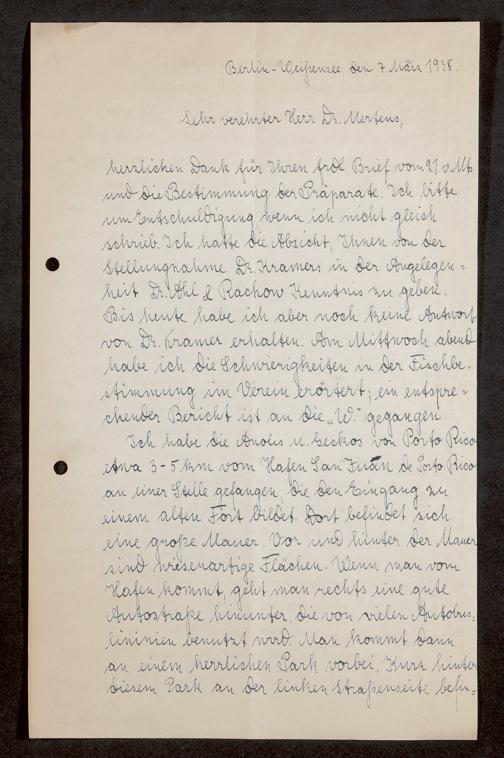 Berlin-Weißensee, den 7. März 1938.
Sehr verehrter Herr Dr. Mertens,
herzlichen Dank für Ihren frdl. Brief vom 21 v. Mt.
und die Bestimmung der Präparate. Ich bitte
um Entschuldigung wenn ich nicht gleich
schrieb. Ich hatte die Absicht, Ihnen von der
Stellungnahme Dr. Kramers in der Angelegen=
heit Dr. Ahl & Rachow Kenntnis zu geben.
Bis heute habe ich aber noch keine Antwort
von Dr. Kramer erhalten. Am Mittwoch abend
habe ich die Schwierigkeiten in der Fischbe=
stimmung im Verein erörtert; ein entspre=
chender Bericht ist an die „W." gegangen.
Ich habe die Anolis u. Geckos von Porto Rico
etwa 3-5 km vom Hafen San Juan de Porto Rico
an einer Stelle gefangen, die den Eingang zu
einem alten Fort bildet. Dort befindet sich
eine große Mauer. Vor und hinter der Mauer
sind wiesenartige Flächen. Wenn man vom
Hafen kommt, geht man rechts eine gute
Autostraße hinunter, die von vielen Autobus=
lininien benutzt wird. Man kommt dann
an einem herrlichen Park vorbei. Kurz hinter
diesem Park an der linken Straßenseite befin=